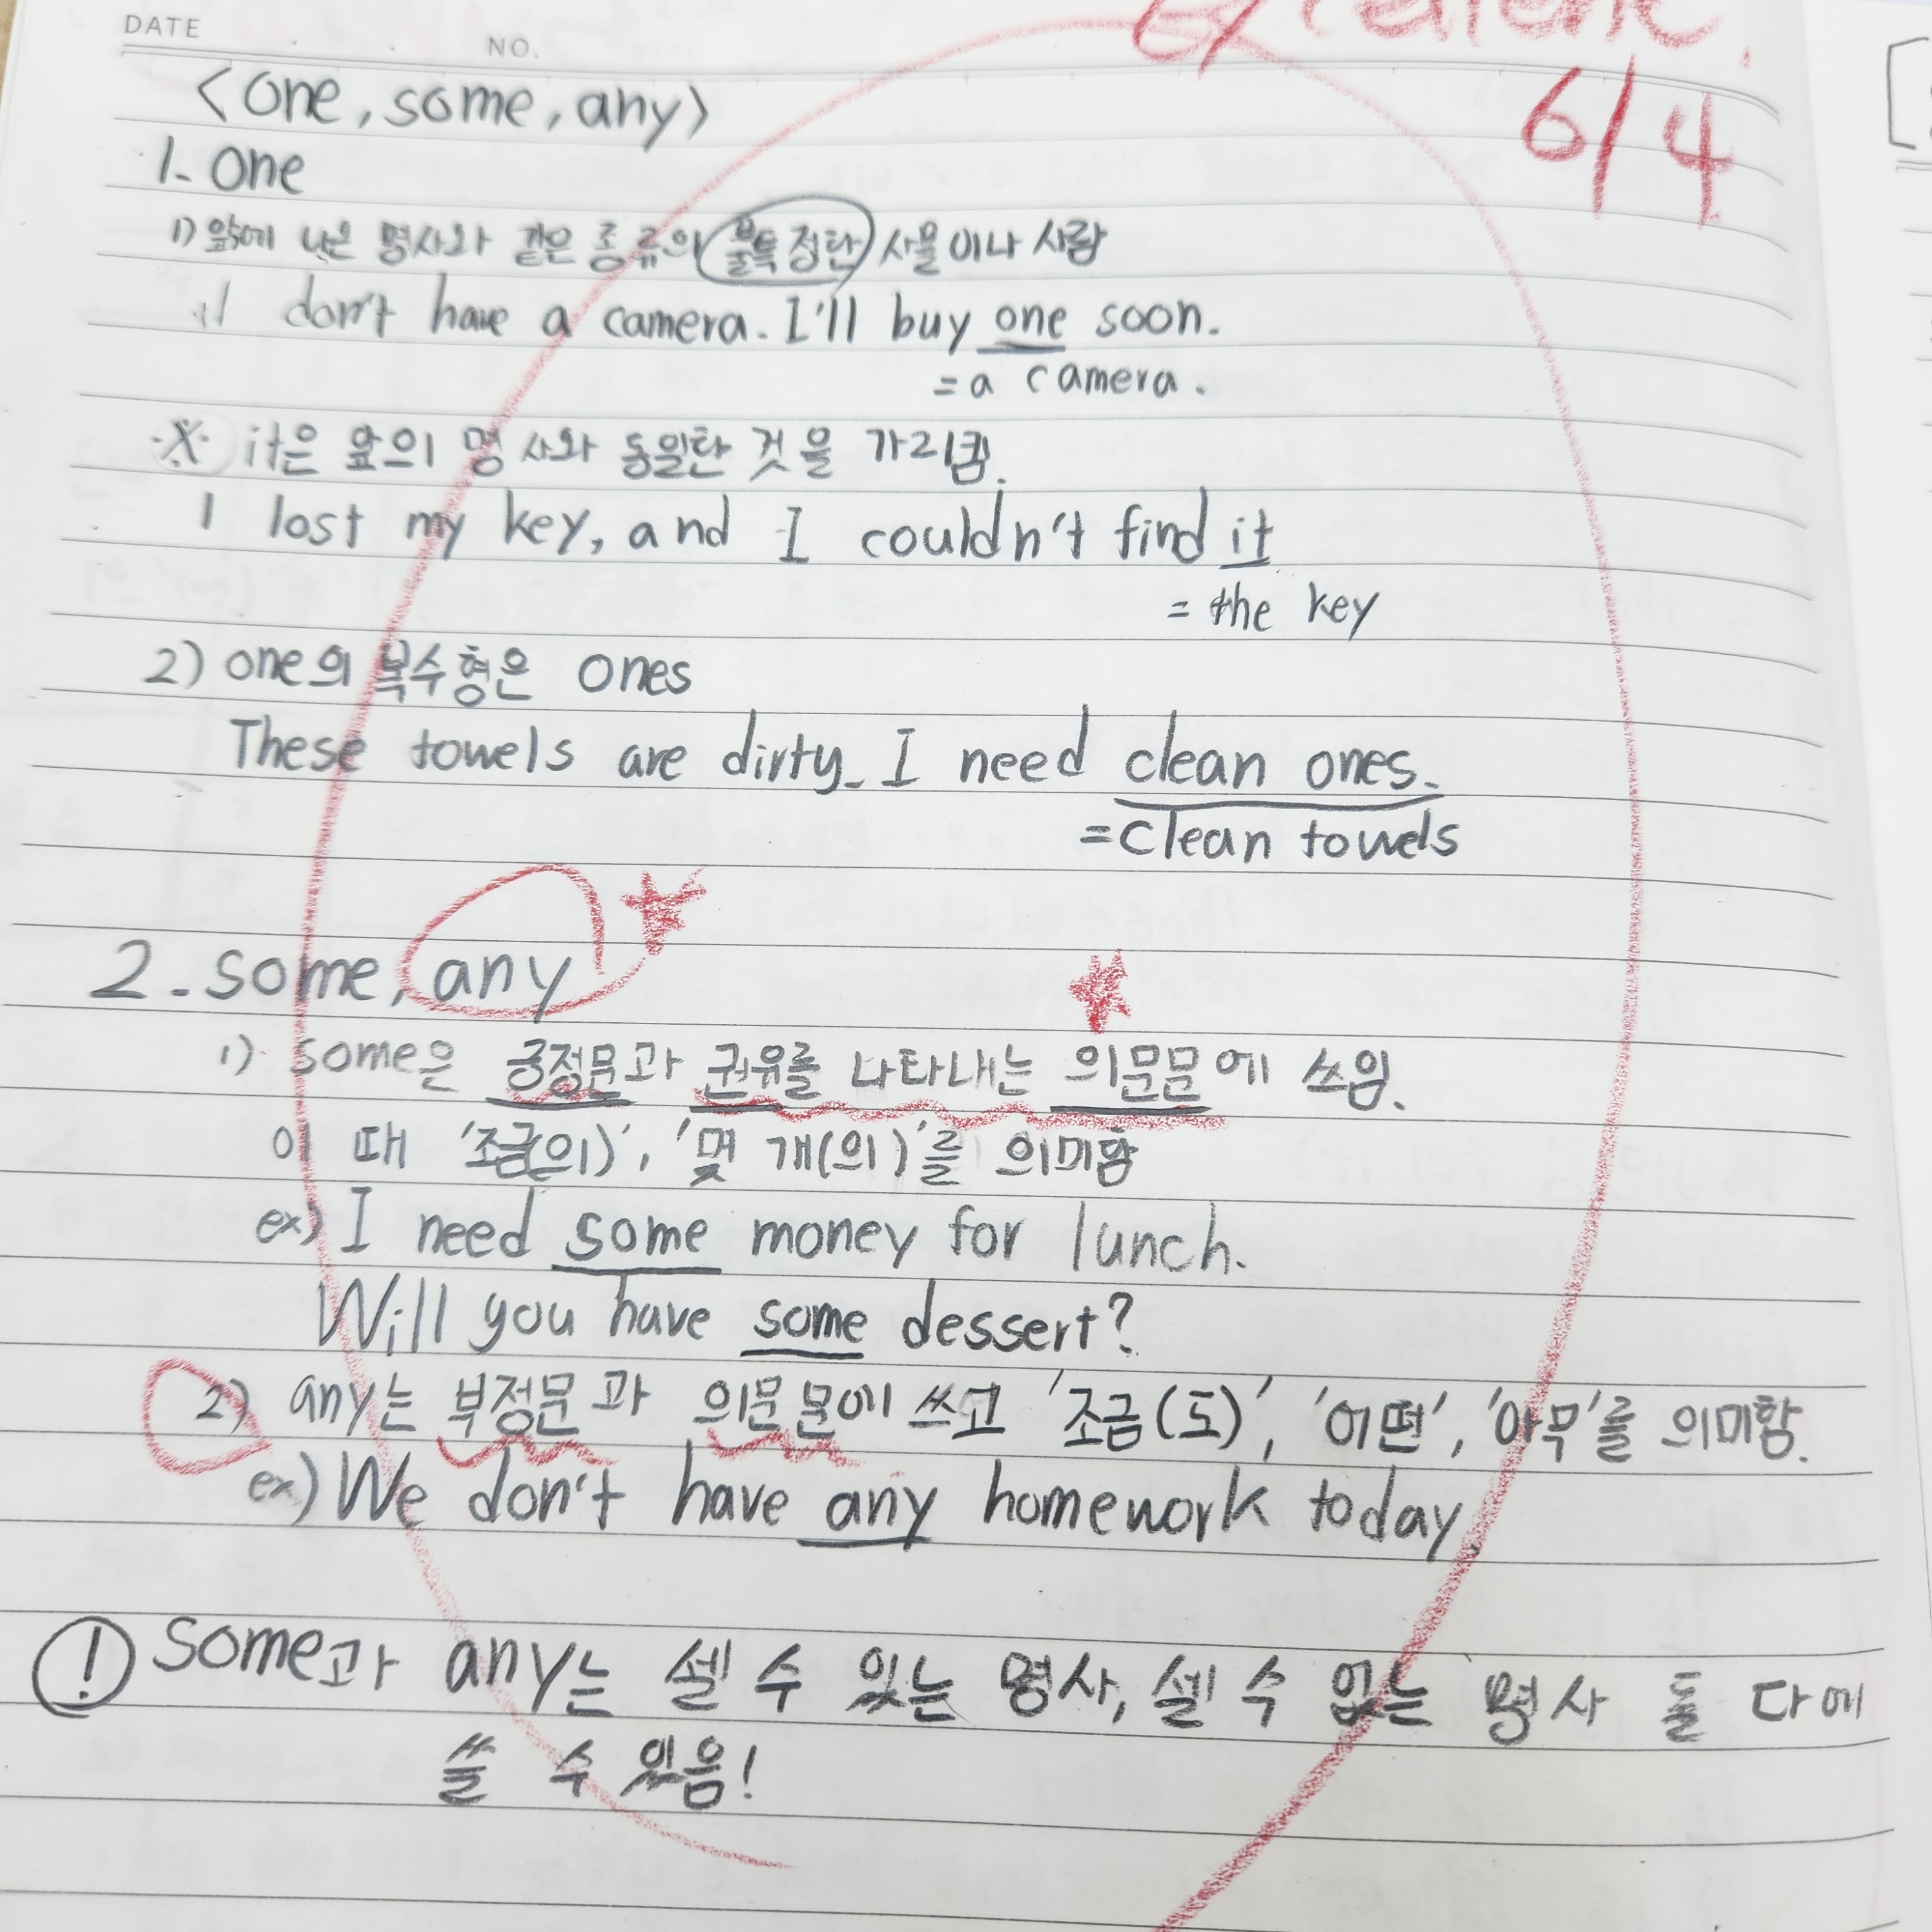 DATE
NO.
Excellent.
6/4
<one, some, any>
1. one
1) 앞에 나온 명사와 같은 종류의 불특정한 사물이나 사람
I don't have a camera. I'll buy one soon.
= a camera.
※ it은 앞의 명사와 동일한 것을 가리킴.
I lost my key, and I couldn't find it
= the key
2) one의 복수형은 ones
These towels are dirty. I need clean ones.
= clean towels
2. some, any
1) some은 긍정문과 권유를 나타내는 의문문에 쓰임.
이 때 '조금(의)', '몇 개(의)'를 의미함
ex) I need some money for lunch.
Will you have some dessert?
2) any는 부정문과 의문문에 쓰고 '조금(도)', '어떤', '아무'를 의미함.
ex) We don't have any homework today.
! some과 any는 셀 수 있는 명사, 셀 수 없는 명사 둘 다에
쓸 수 있음!